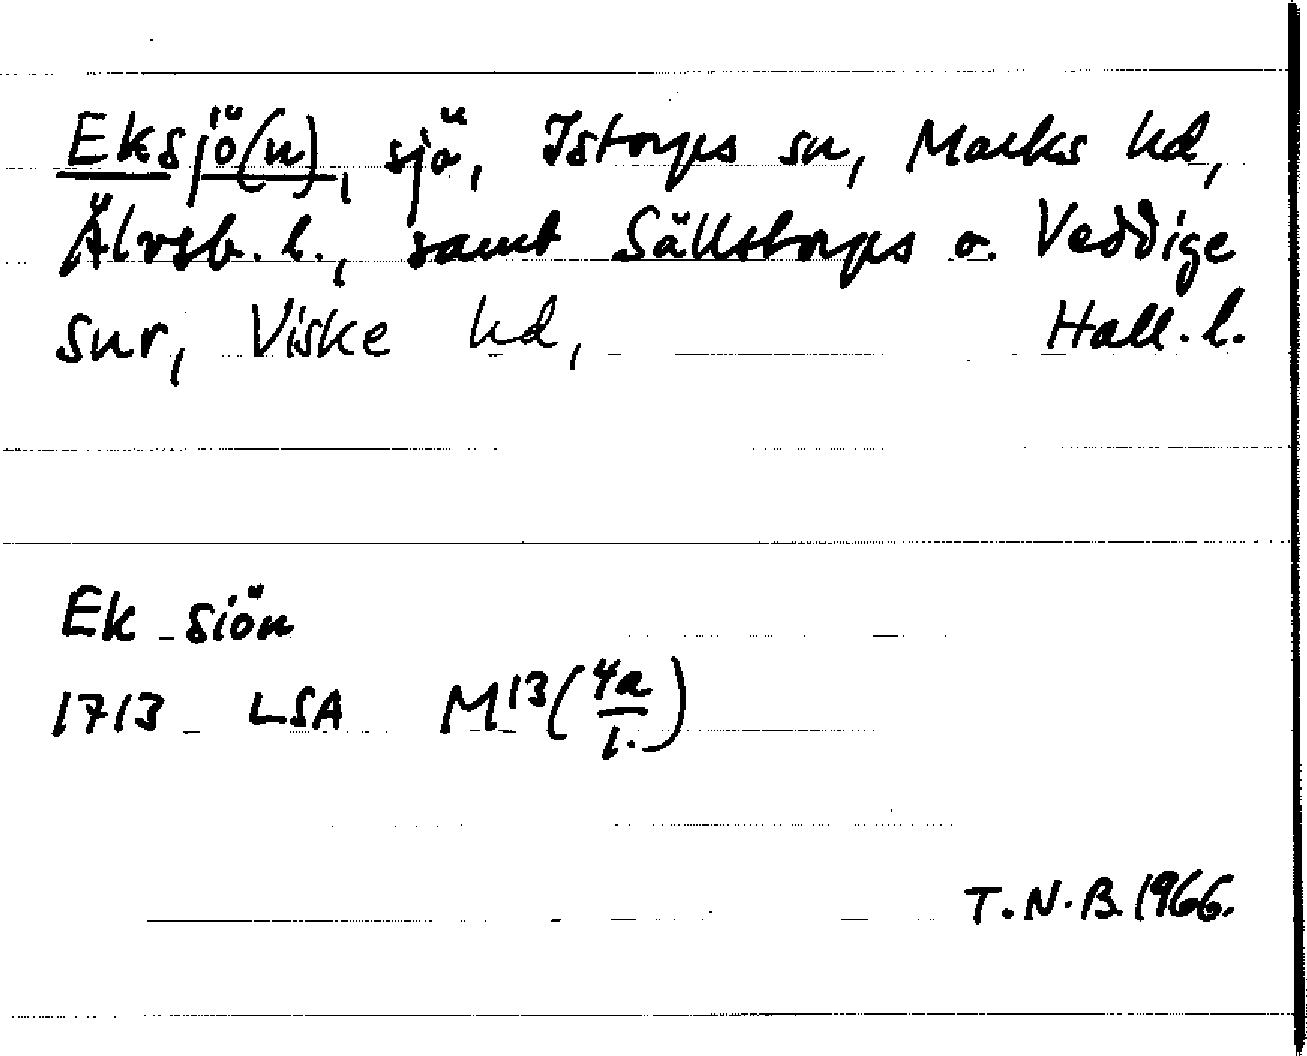 Eksjö(n), sjö, Istorps sn, Marks hd,
Älvsb. l., samt Sällstorps o. Veddige
snr, Viske hd, Hall. l.
Ek siön
1713 LSA M13(4a/1.)
T.N.B. 1966.